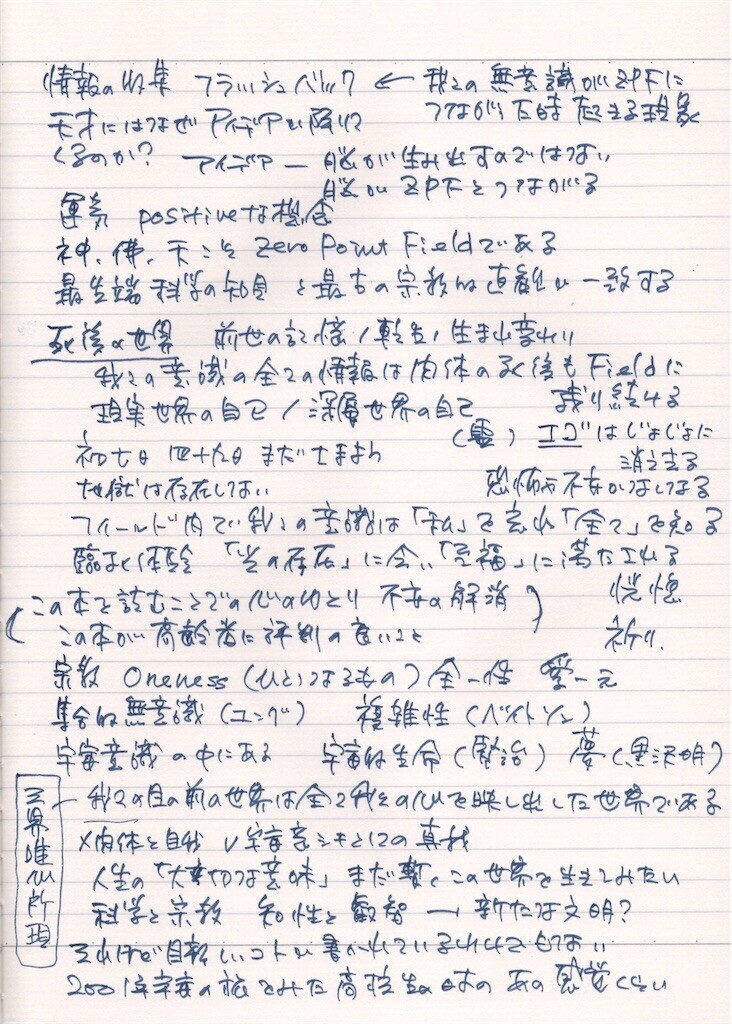 情報の収集 フラッシュバック ← 我々の無意識がZPFに
つながった時起きる現象
天才にはなぜアイデアが降りて
くるのか? アイデア — 脳が生み出すのではない
脳がZPFとつながる
運気 positiveな想念
神、佛、天こそ Zero Point Fieldである
最先端科学の知見と最古の宗教的直観が一致する
死後の世界 前世の記憶/転生/生まれ変わり
我々の意識の全ての情報は肉体の死後もFieldに
残り続ける
現実世界の自己/深層世界の自己
(霊) エゴはじょじょに
消え去る
初七日 四十九日
地獄は存在しない 恐怖や不安がなくなる
フィールド内で我々の意識は「私」を忘れ「全て」を知る
臨死体験 「光の存在」に会い、「至福」に満たされる
(この本を読むことでの心のゆとり 不安の解消 恍惚
この本が高齢者に評判の良いこと) 祈り.
宗教 Oneness (ひとつなるもの) 全一性 愛一元
集合的無意識 (ユング) 複雑性 (ベイトソン)
宇宙意識の中にある 宇宙的生命 (賢治) 夢 (黒沢明)
三界唯心所現
— 我々の目の前の世界は全て我々の心を映し出した世界である
×肉体と自我 ∨宇宙意シキとしての真我
人生の「大切な意味」まだ暫くこの世界を生きてみたい
科学と宗教 知性と叡智 → 新たな文明?
それほど目新しいコトが書かれているわけでもない
2001年宇宙の旅をみた高校生の時のあの感覚くらい